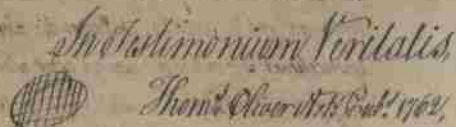 In Testimonium Veritatis,
Thom.s Oliver Not.s Pub.s 1762,